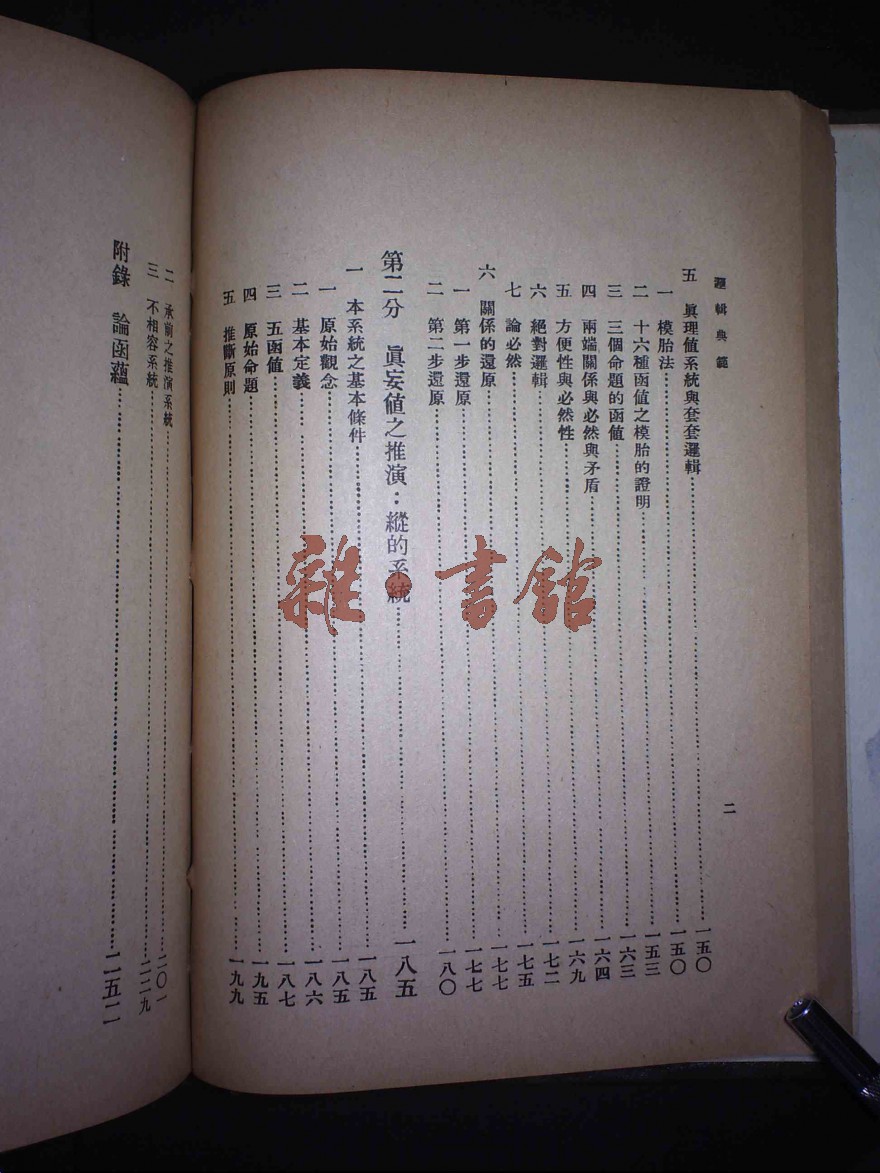 邏輯典範
二
五　眞理值系統與套套邏輯……一五〇
一　模胎法……一五〇
二　十六種函值之模胎的證明……一五三
三　三個命題的函值……一六三
四　兩端關係與必然與矛盾……一六四
五　方便性與必然性……一六九
六　絕對邏輯……一七二
七　論必然……一七五
六　關係的還原……一七七
一　第一步還原……一七七
二　第二步還原……一八〇
第二分　眞妄值之推演：縱的系統……一八五
一　本系統之基本條件……一八五
一　原始觀念……一八五
二　基本定義……一八六
三　五函值……一八七
四　原始命題……一九五
五　推斷原則……一九九
二　承前之推演系統……二〇一
三　不相容系統……二二九
附錄　論函蘊……二五二
雜·書館